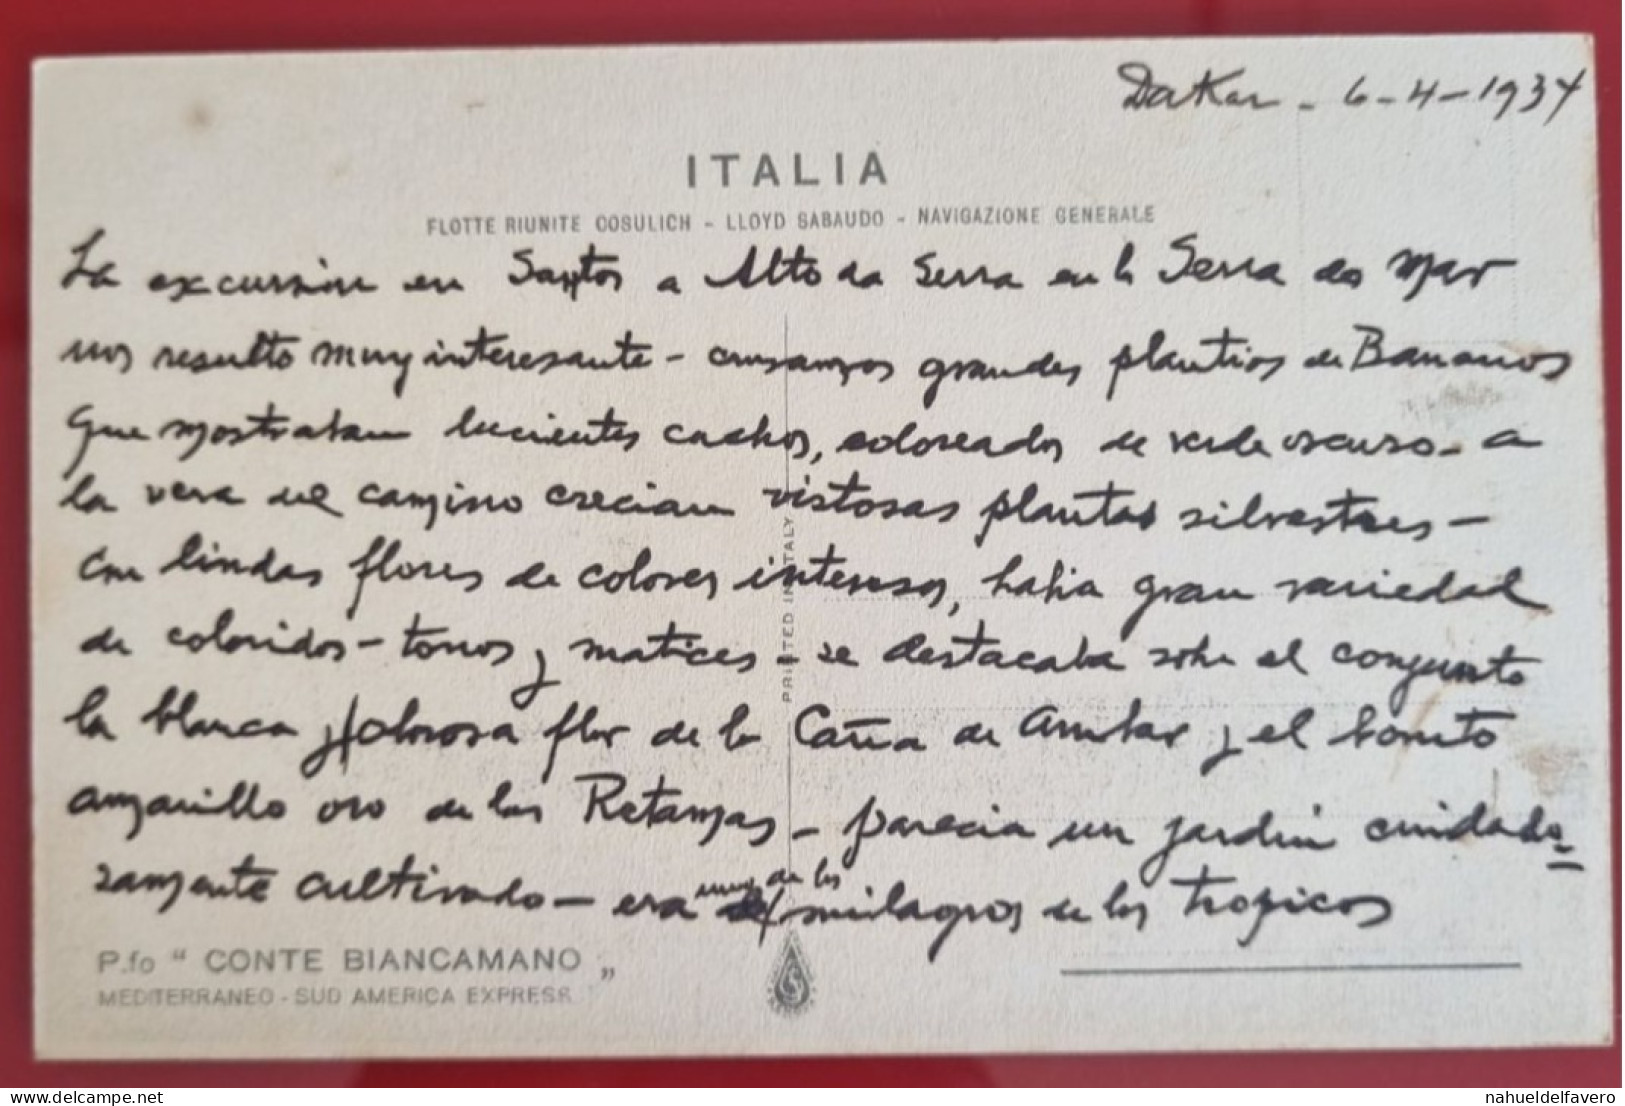 Dakar - 6-4-1934
ITALIA
FLOTTE RIUNITE COSULICH - LLOYD SABAUDO - NAVIGAZIONE GENERALE
La excursion en Santos a Alto da Serra en la Serra do Mar
nos resulto muy interesante - crusamos grandes plantios de Bananos
que mostraban lucientes cachos, coloreados de verde oscuro - a
la vera del camino crecian vistosas plantas silvestres -
con lindas flores de colores intensos, habia gran variedad
de coloridos - tonos y matices - se destacaba sobre el conjunto
la blanca y olorosa flor de la Caña de Ambar y el bonito
amarillo oro de las Retamas - parecia un jardin cuidado=
samente cultivado - era uno de los milagros de los tropicos
PRINTED IN ITALY
P.fo “ CONTE BIANCAMANO „
MEDITERRANEO - SUD AMERICA EXPRESS
delcampe.net
nahueldelfavero